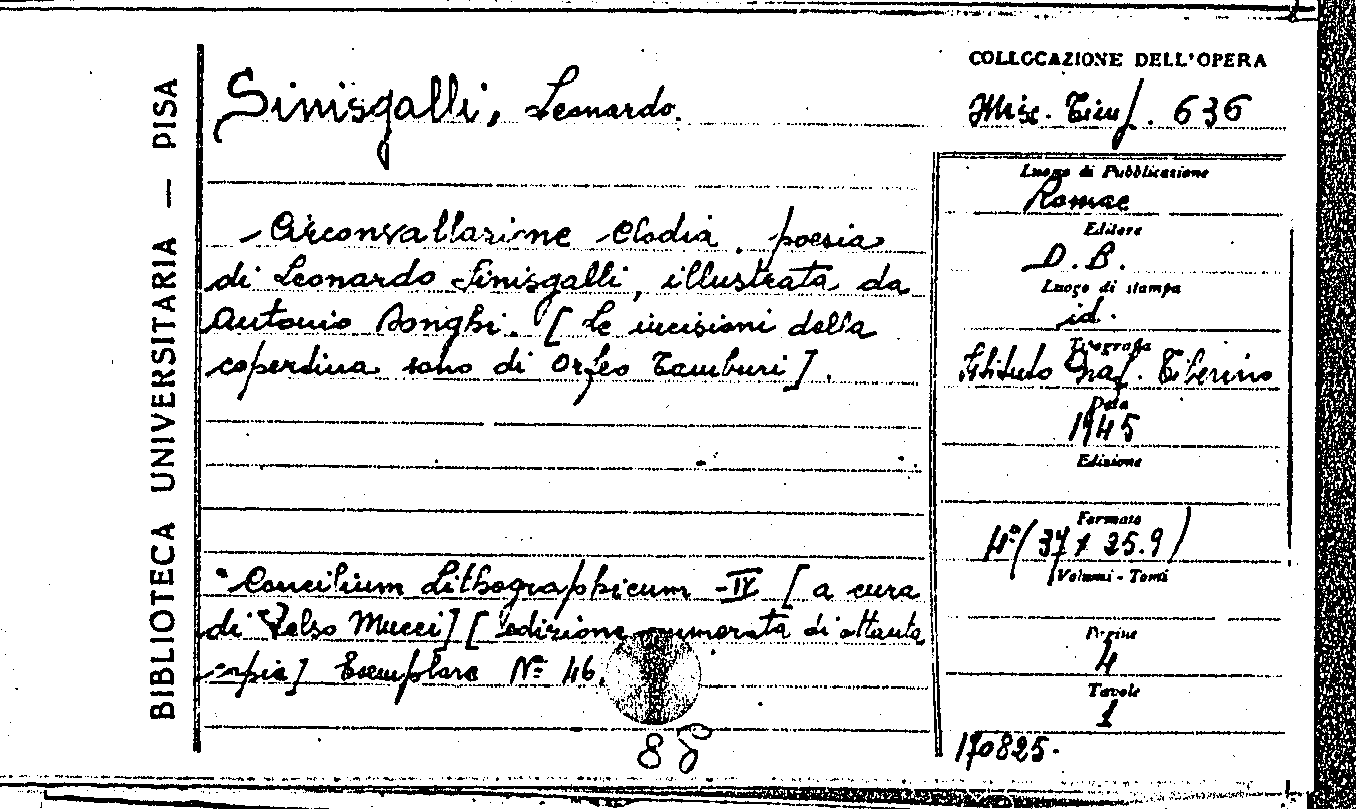 BIBLIOTECA UNIVERSITARIA — PISA
Sinisgalli, Leonardo.
COLLOCAZIONE DELL'OPERA
Misc. Tinf. 636
- Circonvallazione Clodia, poesia
di Leonardo Sinisgalli, illustrata da
Antonio Donghi. [Le incisioni della
copertina sono di Orfeo Tamburi].
• Concilium Lithographicum - IV [a cura
di Velso Mucci] [edizione numerata di ottanta
copie] Esemplare Nº 46.
88
Luogo di Pubblicazione
Romae
Editore
D. B.
Luogo di stampa
id.
Tipografia
Istituto Graf. Tiberino
Data
1945
Edizione
Formato
4º (37 x 25.9)
Volumi - Tomi
Pagine
4
Tavole
1
170825.